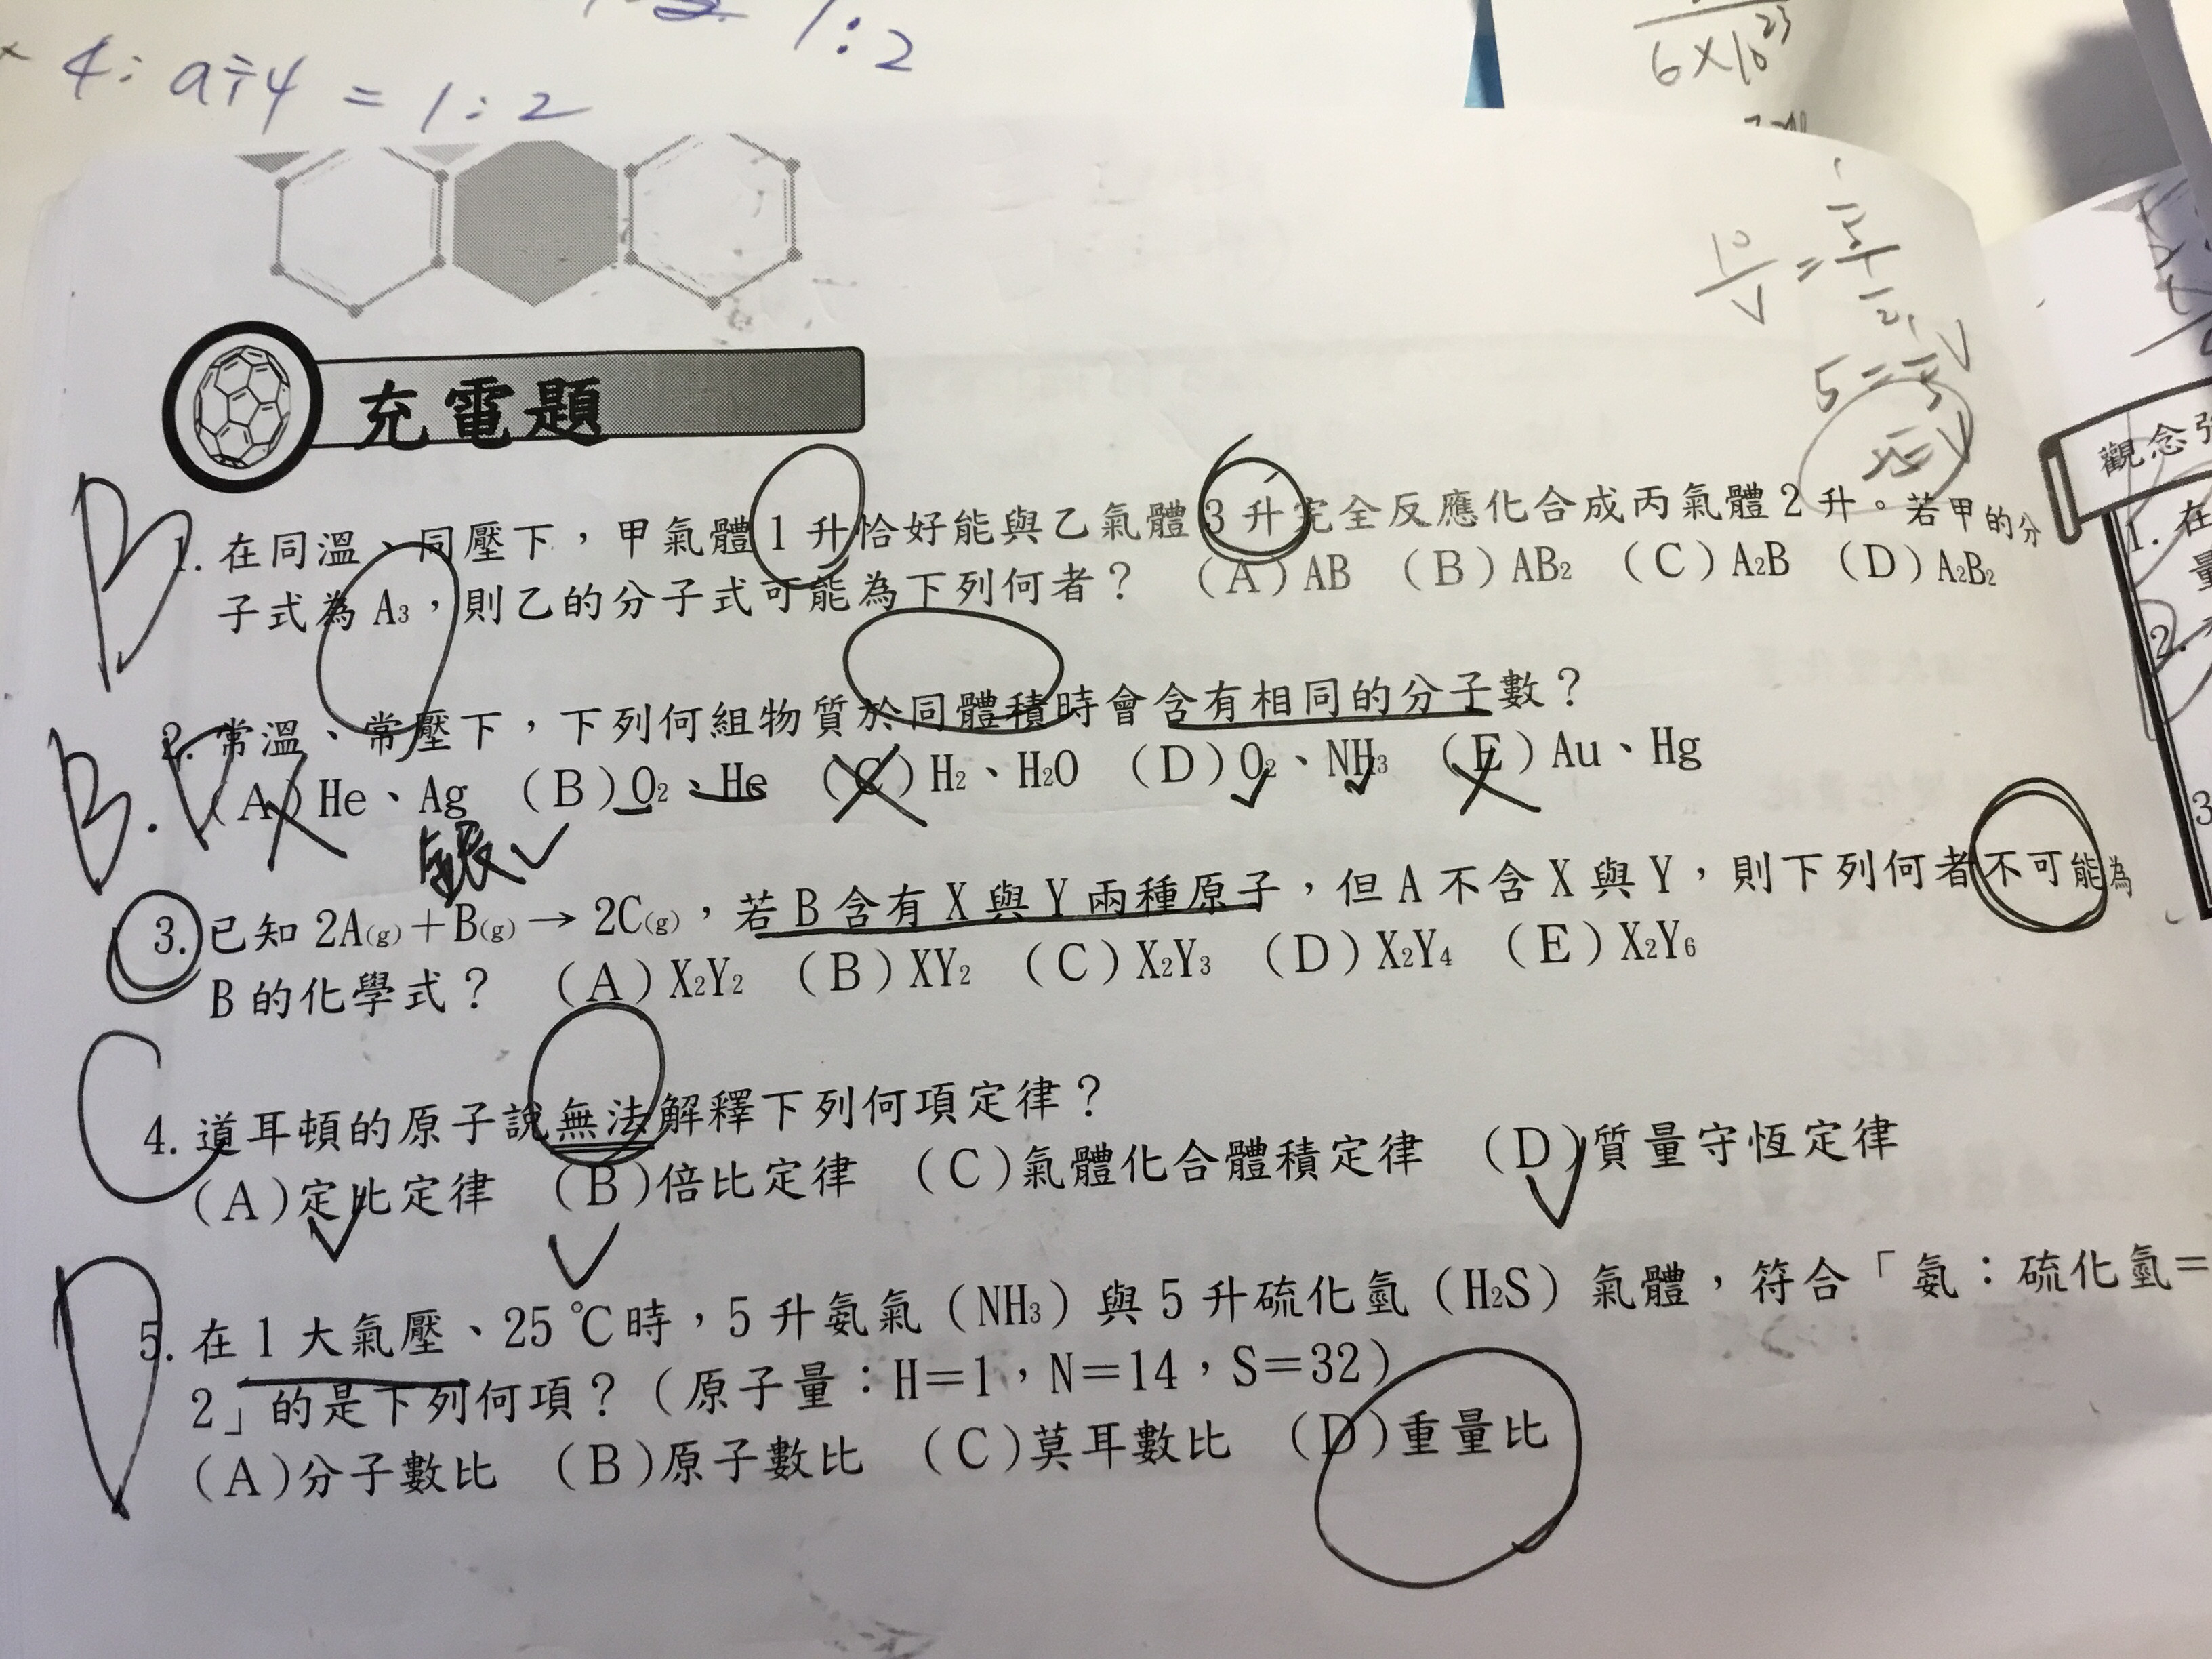 4: a÷4 = 1:2
1:2
6×10²³
充電題
觀念
B
1. 在同溫、同壓下，甲氣體1升恰好能與乙氣體3升完全反應化合成丙氣體2升。若甲的分
子式為A₃，則乙的分子式可能為下列何者？ （A）AB （B）AB₂ （C）A₂B （D）A₂B₂
B.D
2. 常溫、常壓下，下列何組物質於同體積時會含有相同的分子數？
（A）He、Ag （B）O₂、He （C）H₂、H₂O （D）O₂、NH₃ （E）Au、Hg
銀
3. 已知2A(g)＋B(g)→2C(g)，若B含有X與Y兩種原子，但A不含X與Y，則下列何者不可能為
B的化學式？ （A）X₂Y₂ （B）XY₂ （C）X₂Y₃ （D）X₂Y₄ （E）X₂Y₆
C
4. 道耳頓的原子說無法解釋下列何項定律？
（A）定比定律 （B）倍比定律 （C）氣體化合體積定律 （D）質量守恆定律
D
5. 在1大氣壓、25℃時，5升氨氣（NH₃）與5升硫化氫（H₂S）氣體，符合「氨：硫化氫＝
2」的是下列何項？（原子量：H＝1，N＝14，S＝32）
（A）分子數比 （B）原子數比 （C）莫耳數比 （D）重量比
1. 在
2.
3